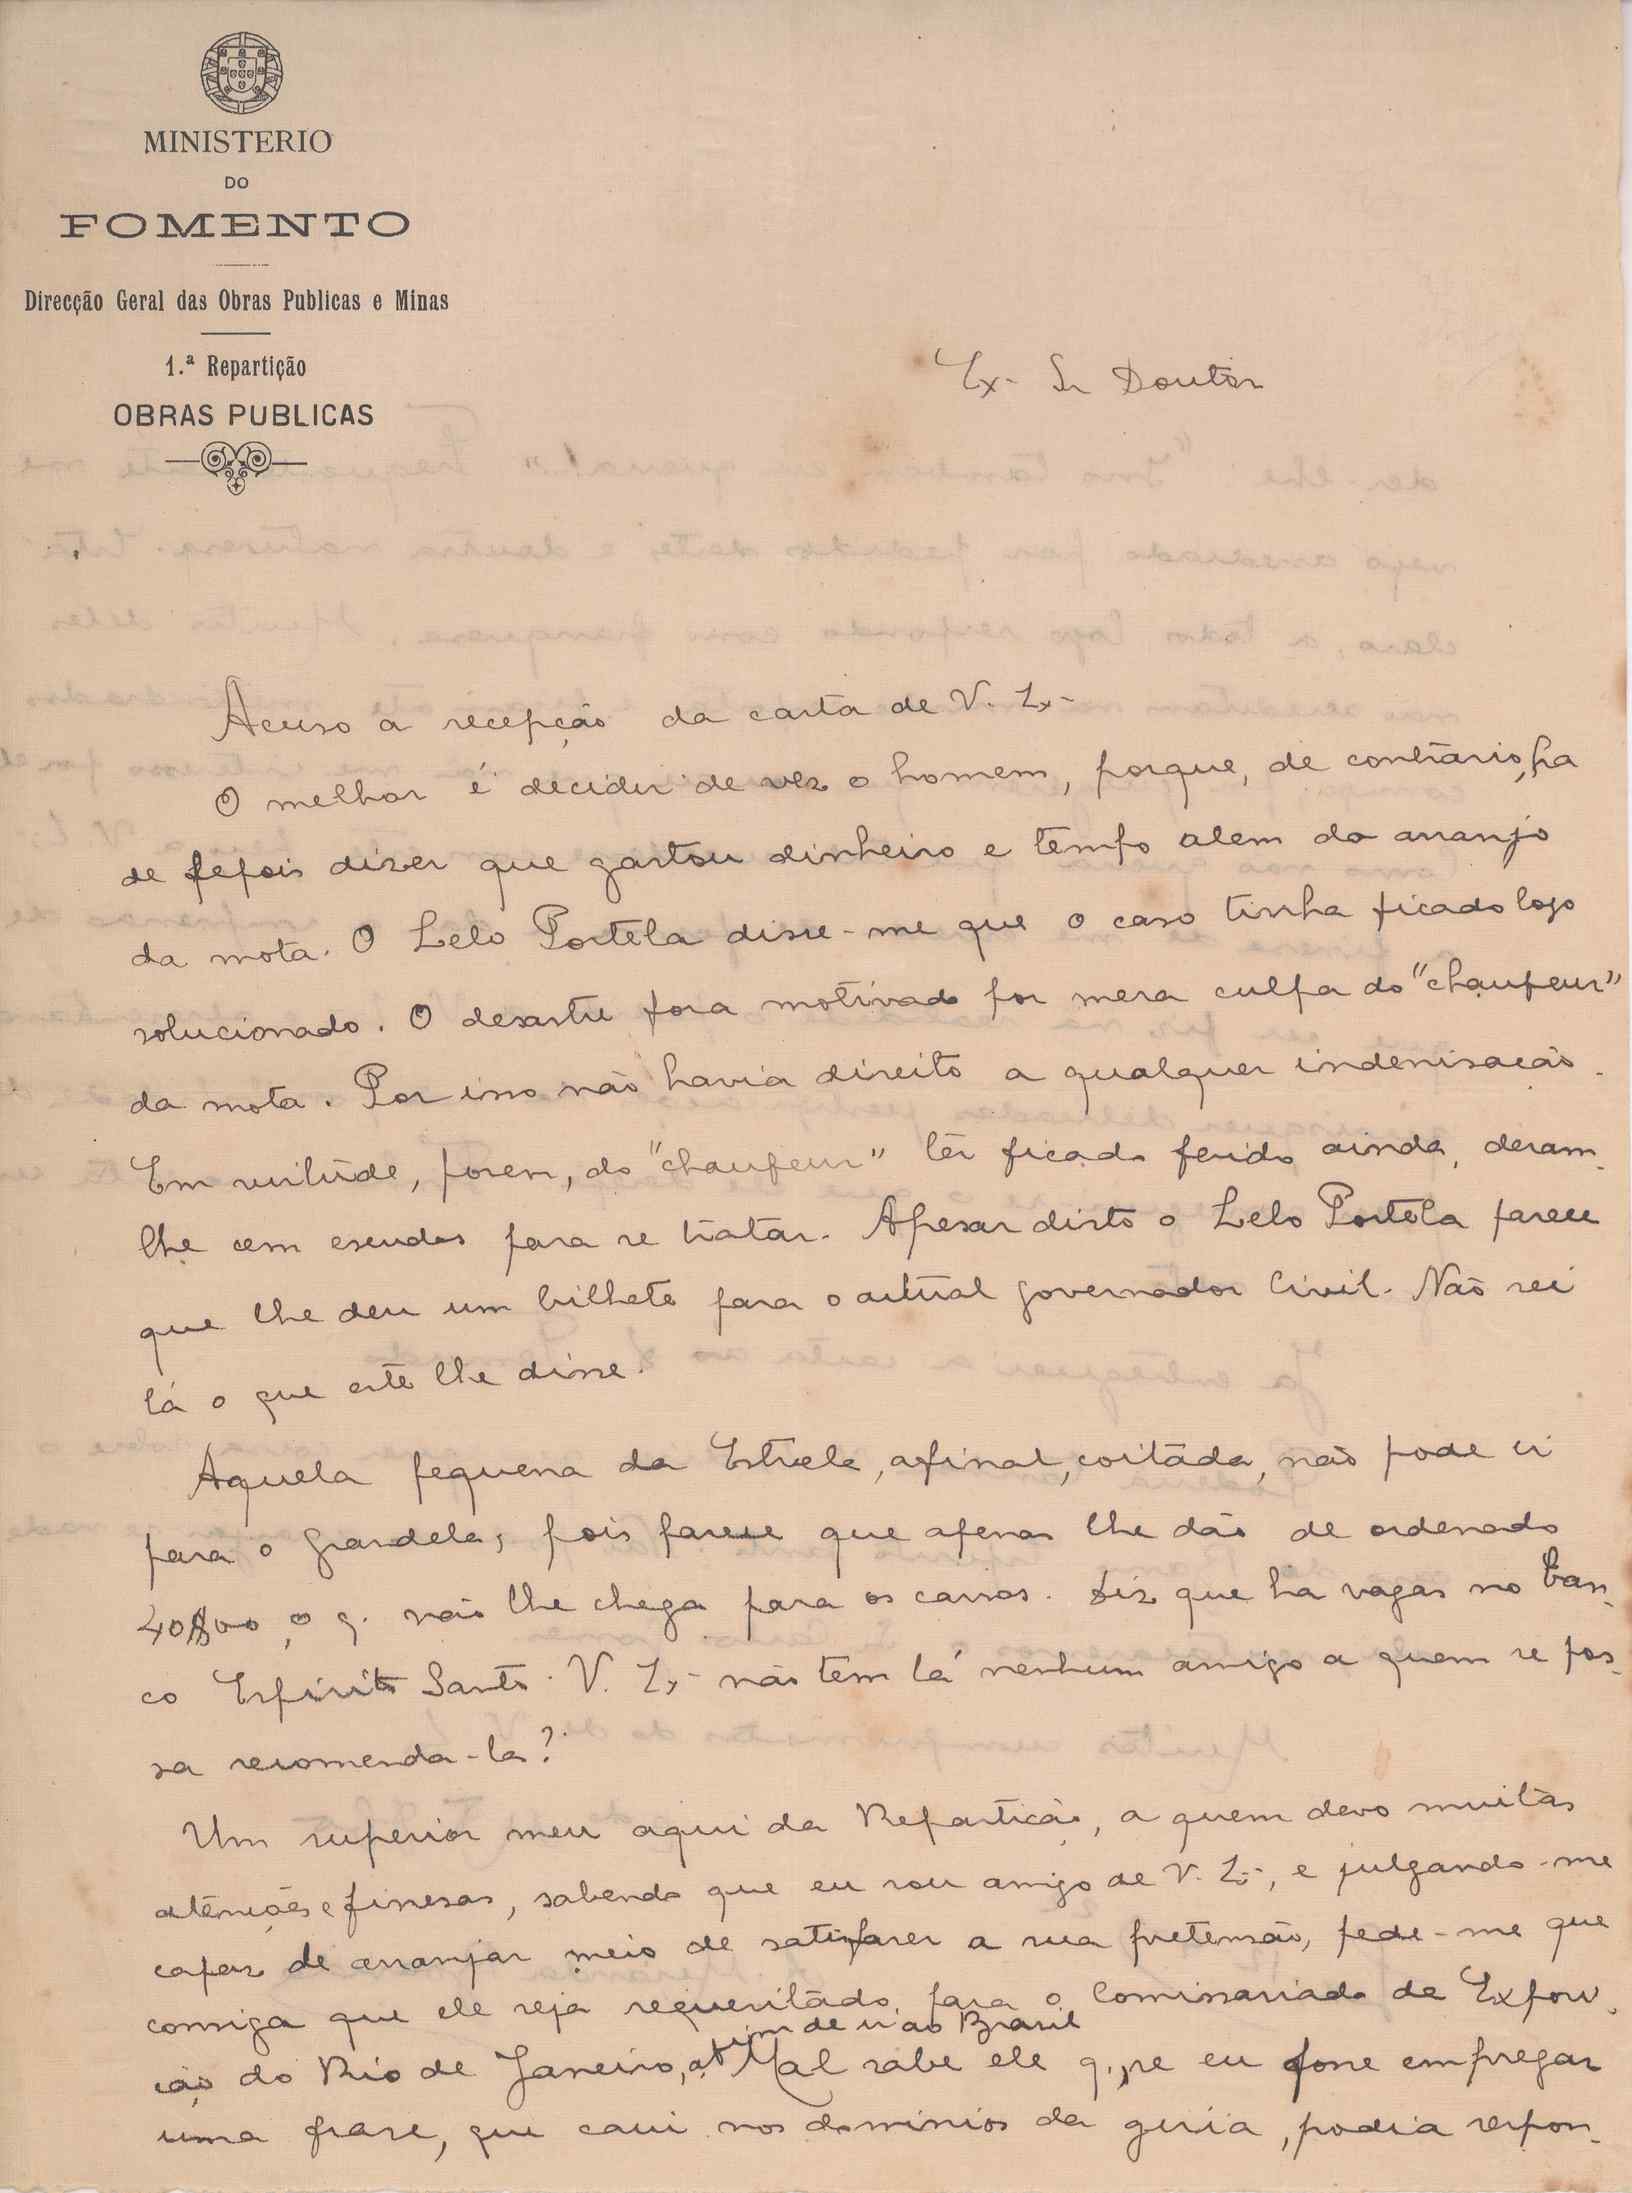 MINISTERIO
DO
FOMENTO
Direcção Geral das Obras Publicas e Minas
1.ª Repartição
OBRAS PUBLICAS
Ex.- Sr Doutor
Acuso a recepção da carta de V. Ex.-
O melhor é decidir de vez o homem, porque, de contrario, ha
de depois dizer que gastou dinheiro e tempo alem do arranjo
da mota. O Lelo Portela disse-me que o caso tinha ficado logo
solucionado. O desastre fora motivado por mera culpa do "chaufeur"
da mota. Por isso não havia direito a qualquer indenisação.
Em virtude, porem, do "chaufeur" ter ficado ferido ainda, deram-
lhe cem escudos para se tratar. Apesar disto o Lelo Portela parece
que lhe deu um bilhete para o actual governador Civil. Não sei
lá o que este lhe disse.
Aquela pequena da Estrela, afinal, coitada, não pode ir
para o Grandela, pois parece que apenas lhe dão de ordenado
40$00, o q. não lhe chega para os carros. Diz que ha vagas no Ban-
co Espirito Santo. V. Ex.- não tem lá nenhum amigo a quem se pos-
sa recomenda-la?
Um superior meu aqui da Repartição, a quem devo muitas
atenções e finesas, sabendo que eu sou amigo de V. Ex.-, e julgando-me
capaz de arranjar meio de satisfazer a sua pretensão, pede-me que
consiga que ele seja requesitado para o Comissariado da Exposi-
ção do Rio de Janeiro, afim de ir ao Brasil
Mal sabe ele q., se eu fosse empregar
uma frase, que caiu nos dominios da giria, podia respon-